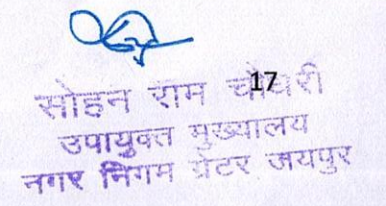 सोहन राम चौधरी
17
उपायुक्त मुख्यालय
नगर निगम ग्रेटर जयपुर